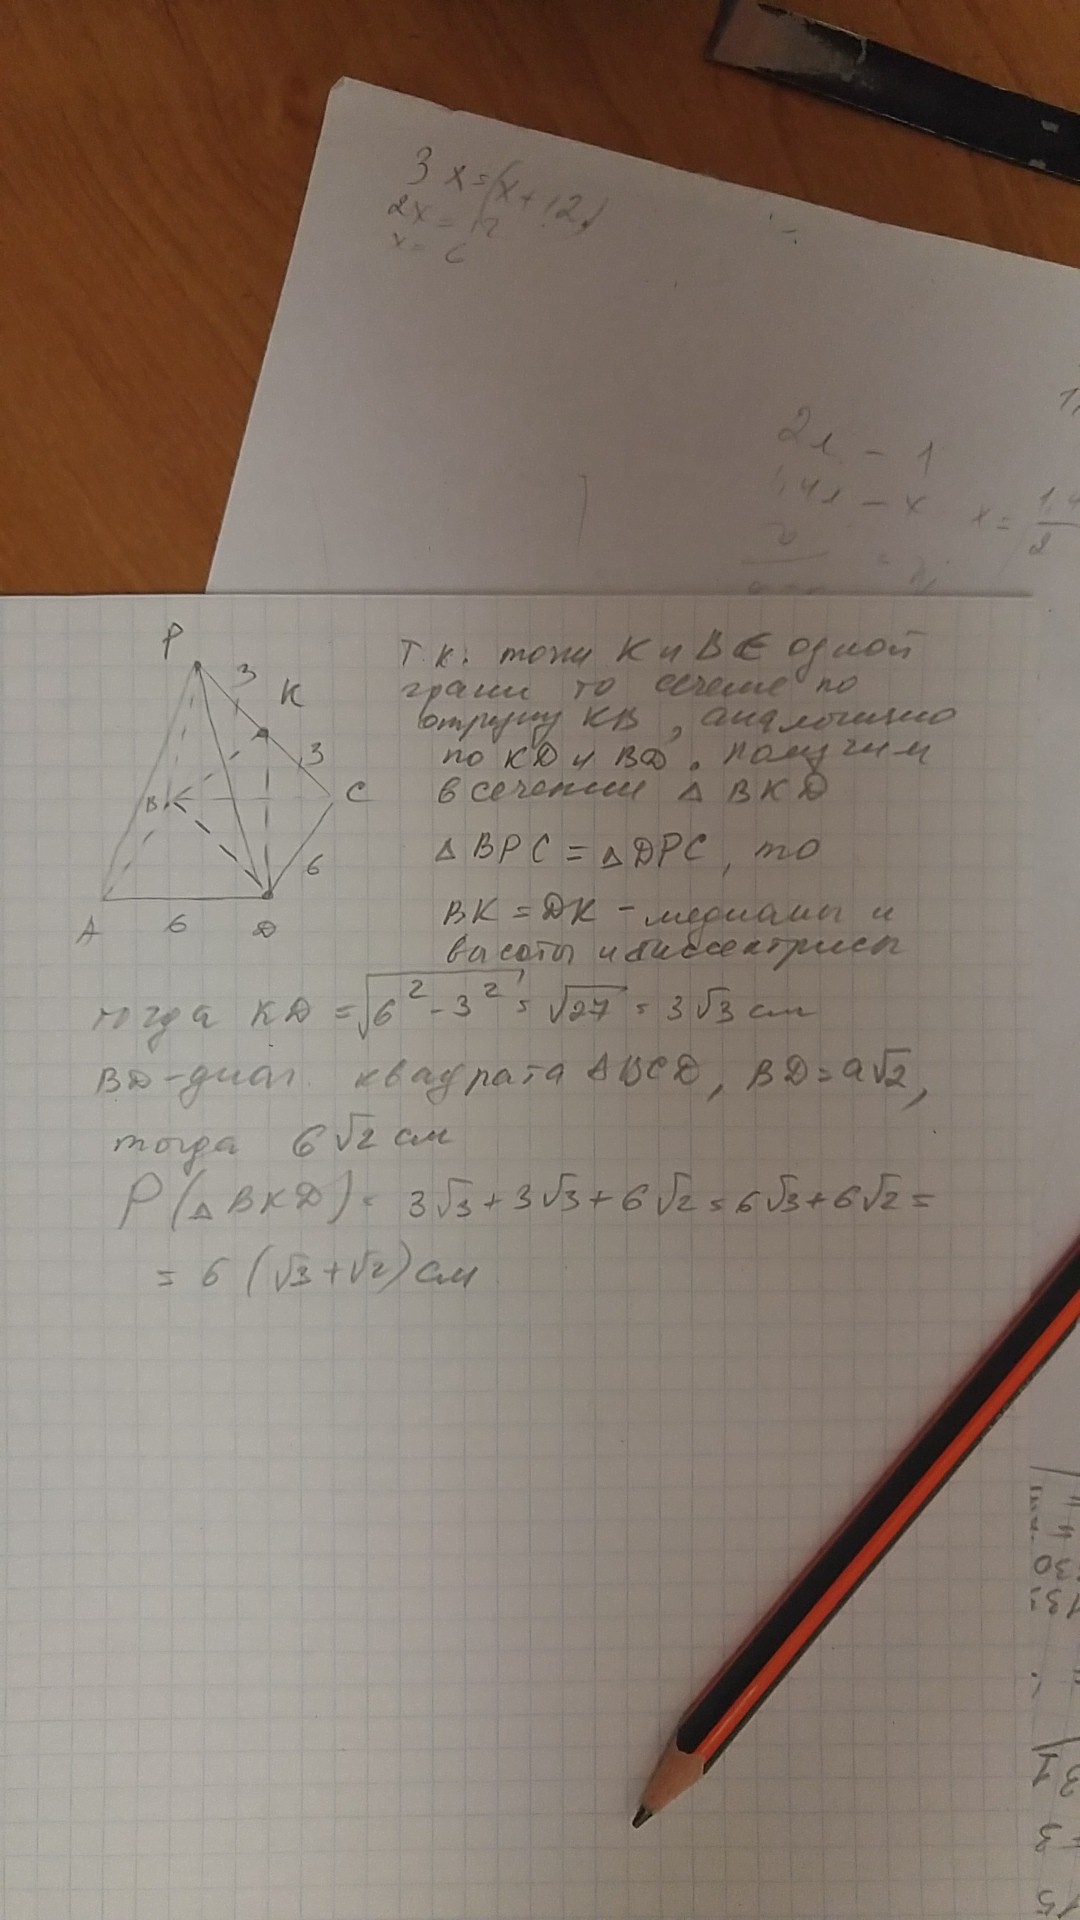 3x=(x+12)
2x=12
x=6
2x - 1
x=
P
3
K
3
B
C
6
A
6
D
Т.к. точки K и B ∈ одной
грани то сечение по
отрезку KB, аналогично
по KD и BD. получим
в сечении △ BKD
△ BPC = △DPC, то
BK = DK - медианы и
высоты и биссектрисы
тогда KD = √6² - 3² = √27 = 3√3 см
BD - диаг. квадрата ABCD, BD = a√2,
тогда 6√2 см
P(△BKD) = 3√3 + 3√3 + 6√2 = 6√3 + 6√2 =
= 6(√3 + √2) см